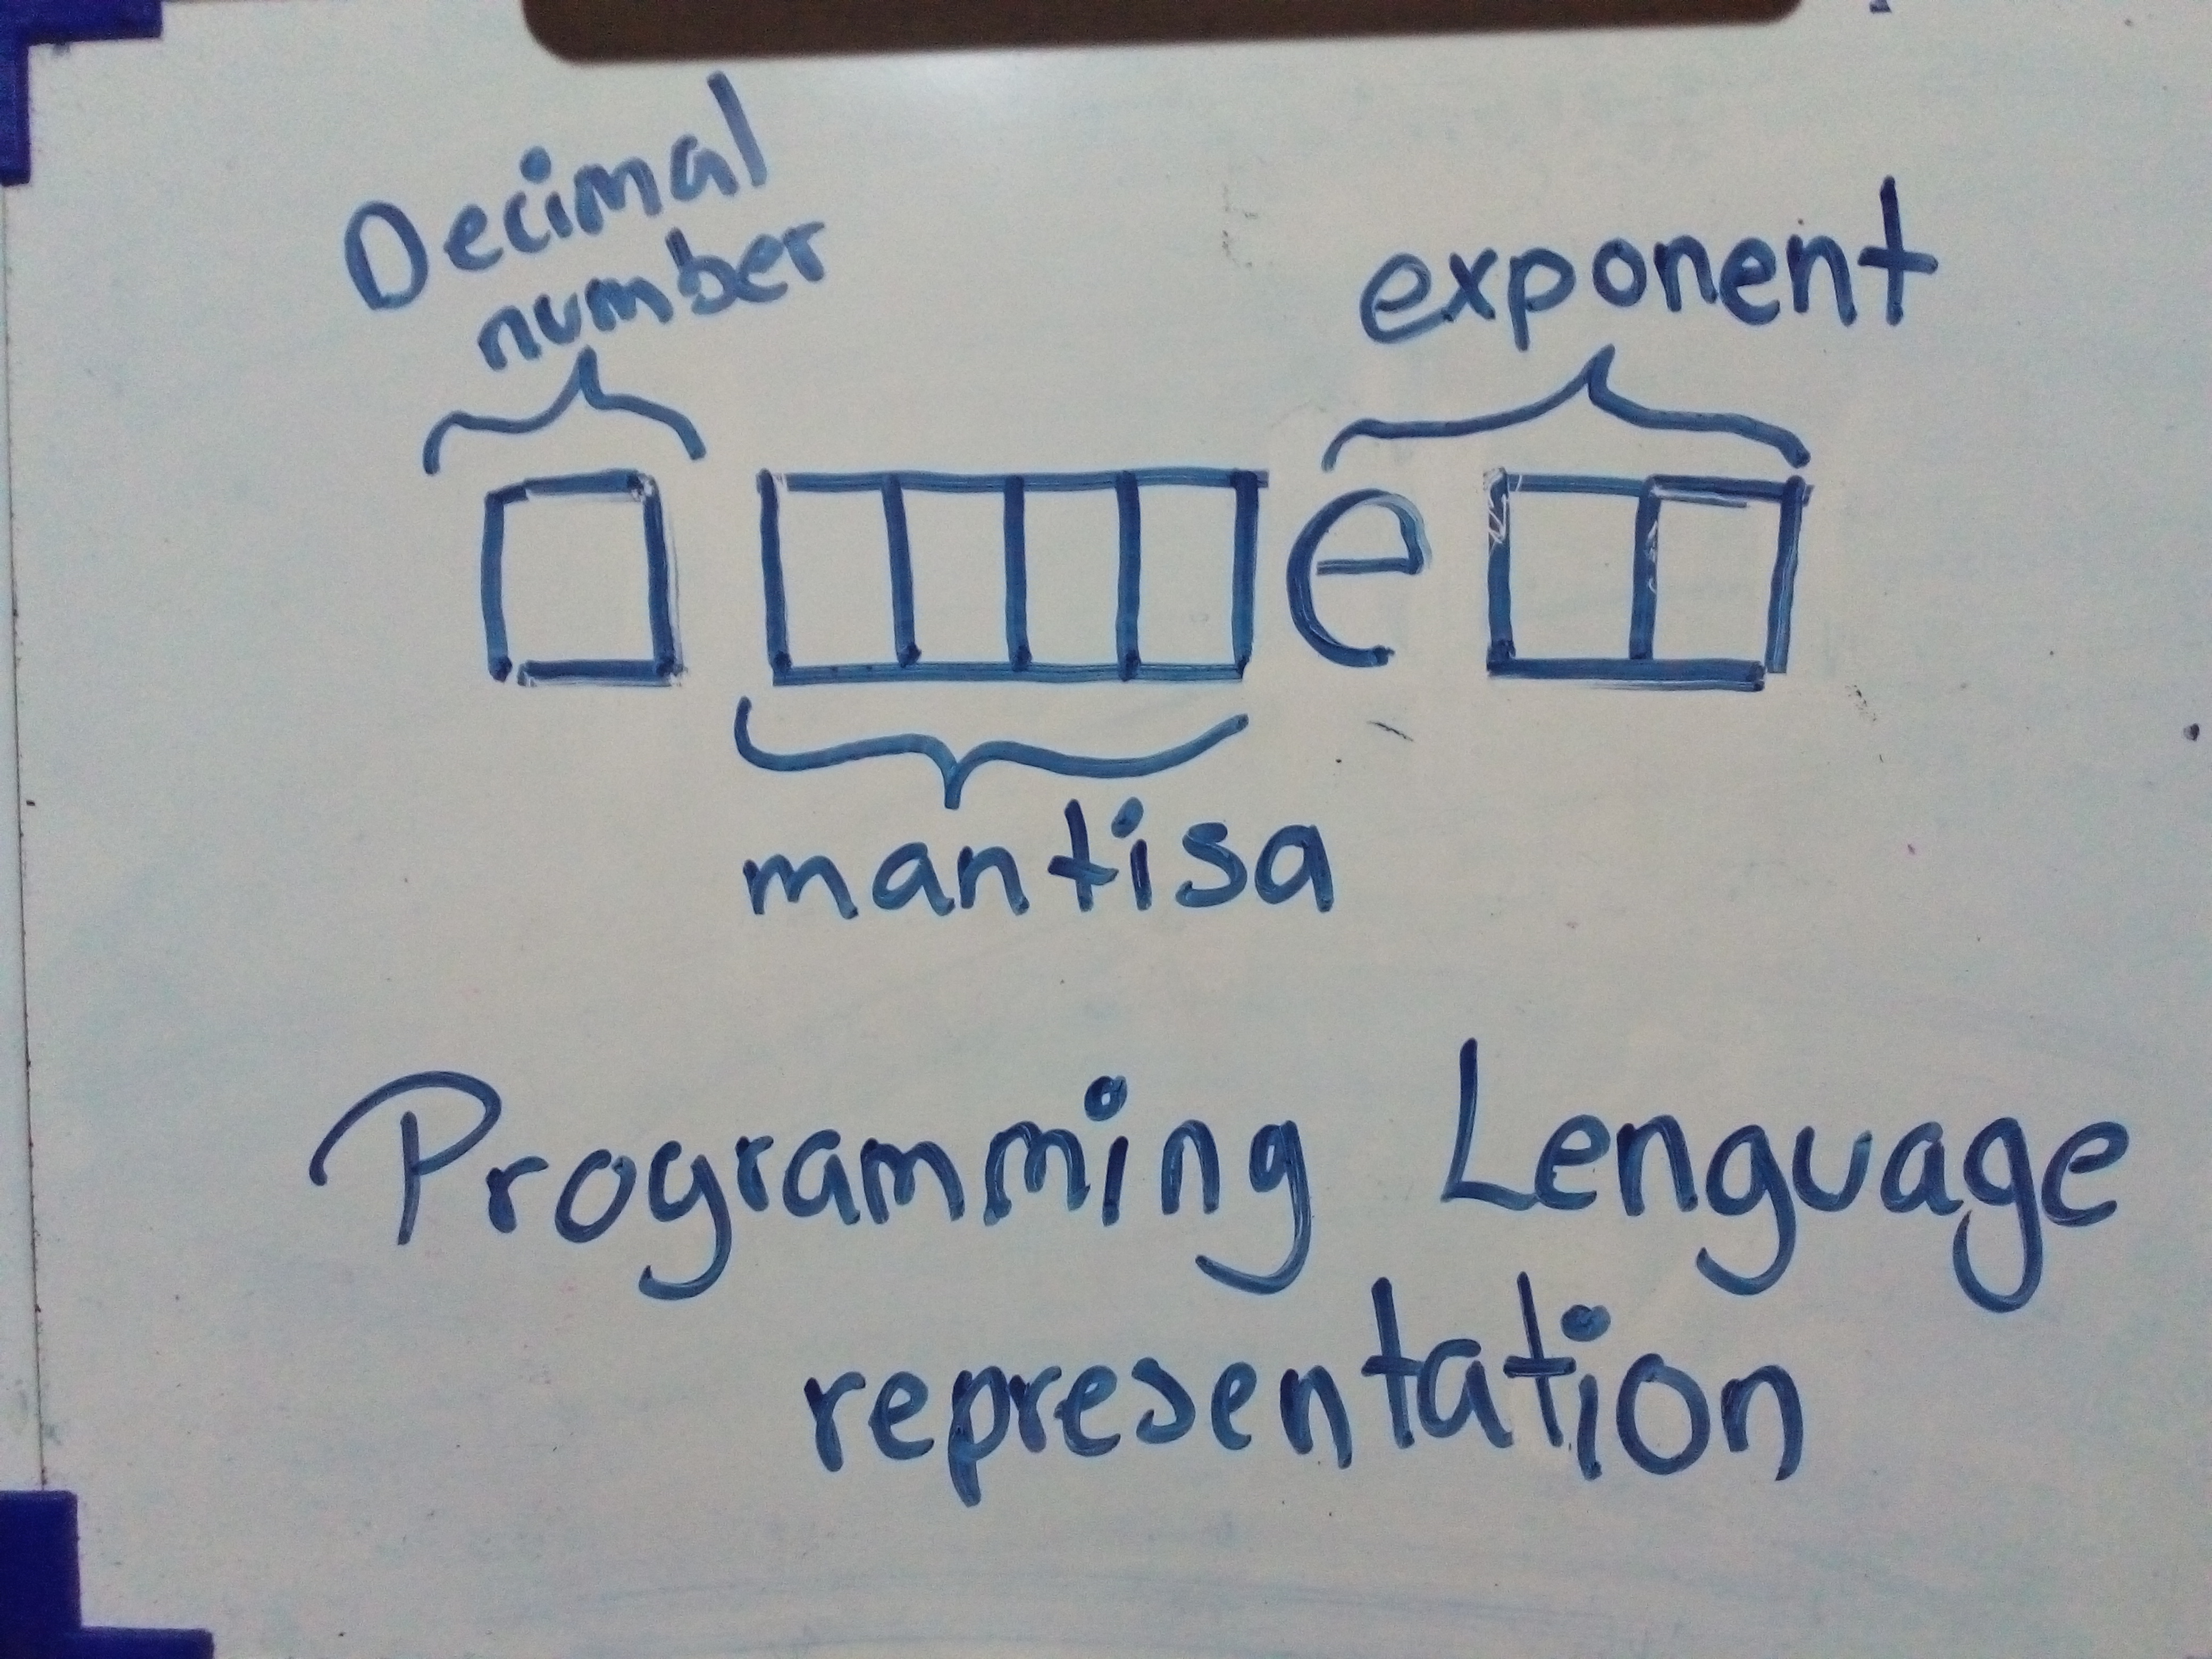 Decimal
number
exponent
e
mantisa
Programming Lenguage
representation